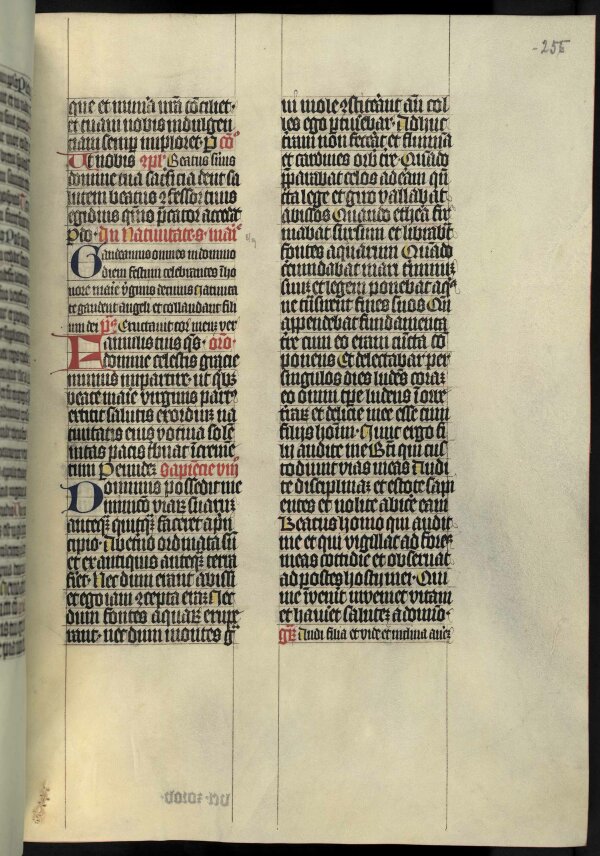 -256
que et munia nra cōciliet·
et tuam nobis indulgen
ciam semp imploret· P cō
Ut nobis rpl· Beatus sīmo
domine tua sacrificia dent sa
lutem beatus ꝯfessor tuus
egidius qs ut pcator accessit
P do· In Natiuitate·s·mari
Gaudeamus omnes in domino
diem festum celebrantes sub ho
nore marie vginis de cuius natiuita
te gaudent angeli et collaudant fili
um dei ps· Eructauit cor meum ver
Famulis tuis qs· oro·
domine celestis gracie
munus impartire· ut qbꝫ
beate marie virginis partꝯ
extitit salutis exordiū na
tiuitatis eius votiua sole
nitas pacis tribuat icreme
tum P eundeꝫ Sapiencie viii
Dominus possedit me
inicio viarꝝ suarꝝ
anteqꝫ quitqꝫ faceret a pn
cipio· Ab etno ordinata sū
et ex antiquis anteqꝫ terra
fiet· Nec dum erant abissi
et ego iam ꝯcepta eram Nec
dum fontes aquarꝝ erupe
rant· nec dum montes g̃
ui mole ꝯstiterant an̄ col
les ego pturiebar· Adhuc
terram non fecerat et flumina
et cardines orb tre· Quādo
pparabat celos aderam qn̄
cta lege et giro vallabat
abissos Quando ethera fir
mabat sursum et librabat
fontes aquarum Quādo
circūdabat mari terminū
suū et legem ponebat aqs
ne tūsirent fines suos Qn̄
appendebat fundamenta
tre cum eo eram cūcta co
ponens Et delectabar per
singulos dies ludēs corā
eo omni tpe ludens ī orbe
traꝝ et delicie mee esse cum
filijs hoīm· Nunc ergo fi
lii audite me Bti qui cus
todiunt vias meas Audi
te disciplinā et estote sapi
entes et nolite abicere eam
Beatus homo qui audit
me et qui vigilat ad fores
meas cottidie et obseruat
ad postes hostij mei· Qui
me īuenit inueniet vitam
et hauriet salutē a domīo·
gr̄ Audi filia et vide et inclina aurē